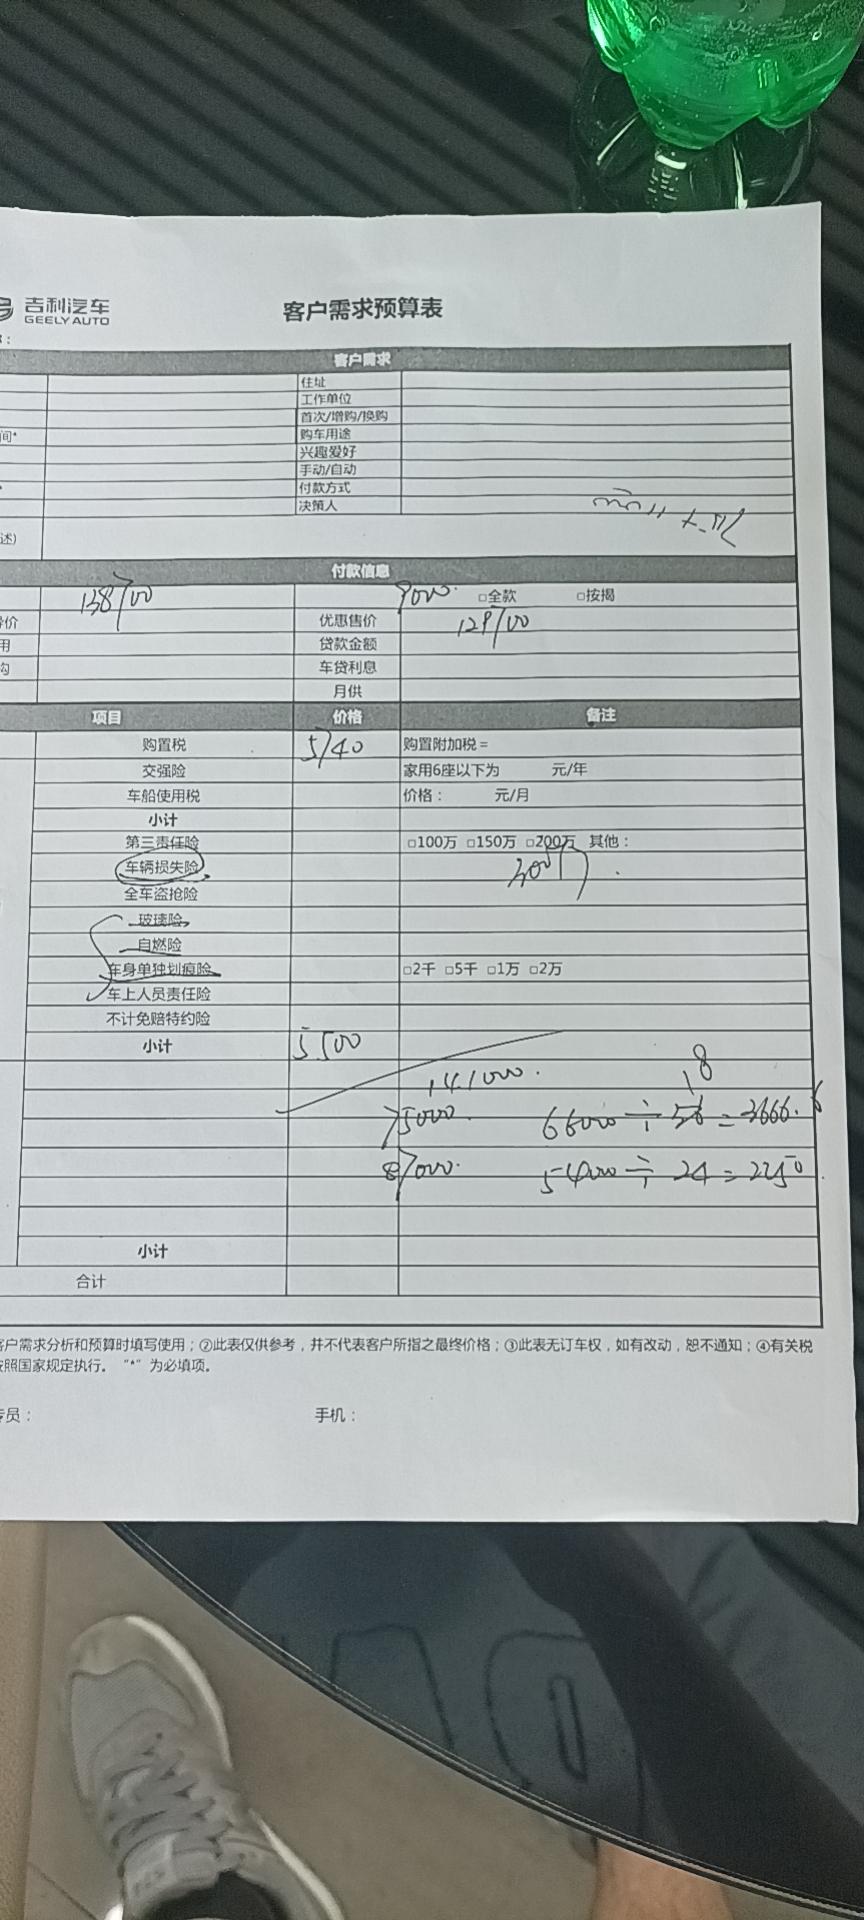 吉利汽车
GEELY AUTO
客户需求预算表
：
客户需求
住址
工作单位
首次/增购/换购
间*
购车用途
兴趣爱好
手动/自动
付款方式
决策人
述)
付款信息
138700 9000. □全款 □按揭
价 优惠售价 129700
用 贷款金额
购 车贷利息
月供
项目 价格 备注
购置税 5740 购置附加税=
交强险 家用6座以下为 元/年
车船使用税 价格： 元/月
小计
第三责任险 □100万 □150万 □200万 其他：
车辆损失险 300万
全车盗抢险
玻璃险
自燃险
车身单独划痕险 □2千 □5千 □1万 □2万
车上人员责任险
不计免赔特约险
小计 5500
141000.
18
75000. 66000÷36=3666.6
87000. 54000÷24=2250
小计
合计
客户需求分析和预算时填写使用；②此表仅供参考，并不代表客户所指之最终价格；③此表无订车权，如有改动，恕不通知；④有关税
按照国家规定执行。“*”为必填项。
专员： 手机：